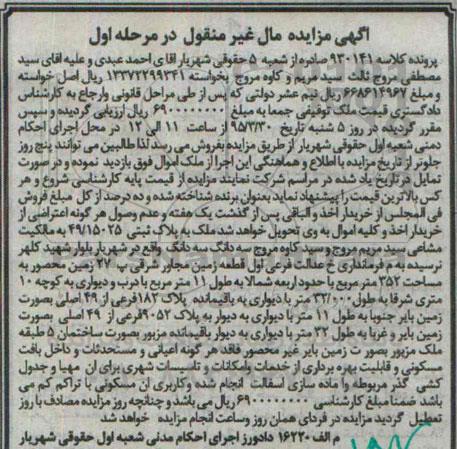 آگهی مزایده مال غیر منقول در مرحله اول
پرونده کلاسه ۹۳۰۱۴۱ صادره از شعبه ۵ حقوقی شهریار آقای احمد عبدی و علیه آقای سید
مصطفی مروج ثالث سید مریم و کاوه مروج بخواسته ۱۳۳۷۲۲۹۹۳۴۱ ریال اصل خواسته
و مبلغ ۶۶۸۶۱۴۹۶۷ ریال نیم عشر دولتی که پس از طی مراحل قانونی وارجاع به کارشناس
دادگستری قیمت ملک توقیفی جمعا به مبلغ ۶۹۰۰۰۰۰۰۰۰ ریال ارزیابی گردیده و سپس
مقرر گردیده در روز ۵ شنبه تاریخ ۹۵/۳/۳۰ از ساعت ۱۱ الی ۱۲ در محل اجرای احکام
دمنی شعبه اول حقوقی شهریار از طریق مزایده بفروش می رسد لذا طالبین می توانند پنج روز
جلوتر از تاریخ مزایده با اطلاع و هماهنگی این اجرا از ملک اموال فوق بازدید نموده و در صورت
تمایل در تاریخ یاد شده در مراسم شرکت نمایند مزایده از قیمت پایه کارشناسی شروع و هر
کس بالاترین قیمت را پیشنهاد نماید بعنوان برنده شناخته شده و ده درصد از کل مبلغ فروش
فی المجلس از خریدار اخذ و الباقی پس از گذشت یک هفته و عدم وصول هر گونه اعتراضی از
خریدار اخذ و کلیه اموال به وی تحویل خواهد شد ملک به پلاک ثبتی ۴۹/۱۵۰۲۵ به مالکیت
مشاعی سید مریم مروج و سید کاوه مروج سه دانگ سه دانگ واقع در شهریار بلوار شهید کلهر
نرسیده به م فرمانداری خ عدالت فرعی اول قطعه زمین مجاور شرقی پ ۲۷ زمین محصور به
مساحت ۳۵۲ متر مربع با حدود اربعه شمالا به طول ۱۱ متر مربع با درب و دیوار به کوچه ۱۰
متری شرقا به طول ۳۲/۰۰۰ متر با دیواری به باقیمانده پلاک ۱۸۲ فرعی از ۴۹ اصلی بصورت
زمین بایر جنوبا به طول ۱۱ متر با دیواری به دیوار به پلاک ۹۰۵۲ فرعی از ۴۹ اصلی بصورت
زمین بایر و غربا به طول ۳۲ متر با دیواری به دیوار باقیمانده مزبور بصورت ساختمان ۵ طبقه
ملک مزبور بصورت زمین بایر غیر محصور فاقد هر گونه اعیانی و مستحدثات و داخل بافت
مسکونی و قابلیت بهره برداری از خدمات وامکانات و تاسیسات شهری برای آن مهیا و جدول
کشی گذر مربوطه با ماده سازی آسفالت انجام شده و کاربری آن مسکونی با تراکم کم می
باشد ضمنا مبلغ کارشناسی ۶۹۰۰۰۰۰۰۰۰ ریال می باشد و چنانچه روز مزایده مصادف با روز
تعطیل گردید مزایده در فردای همان روز وساعت انجام مزایده خواهد شد
م الف ۱۶۲۲۰ دادورز اجرای احکام مدنی شعبه اول حقوقی شهریار